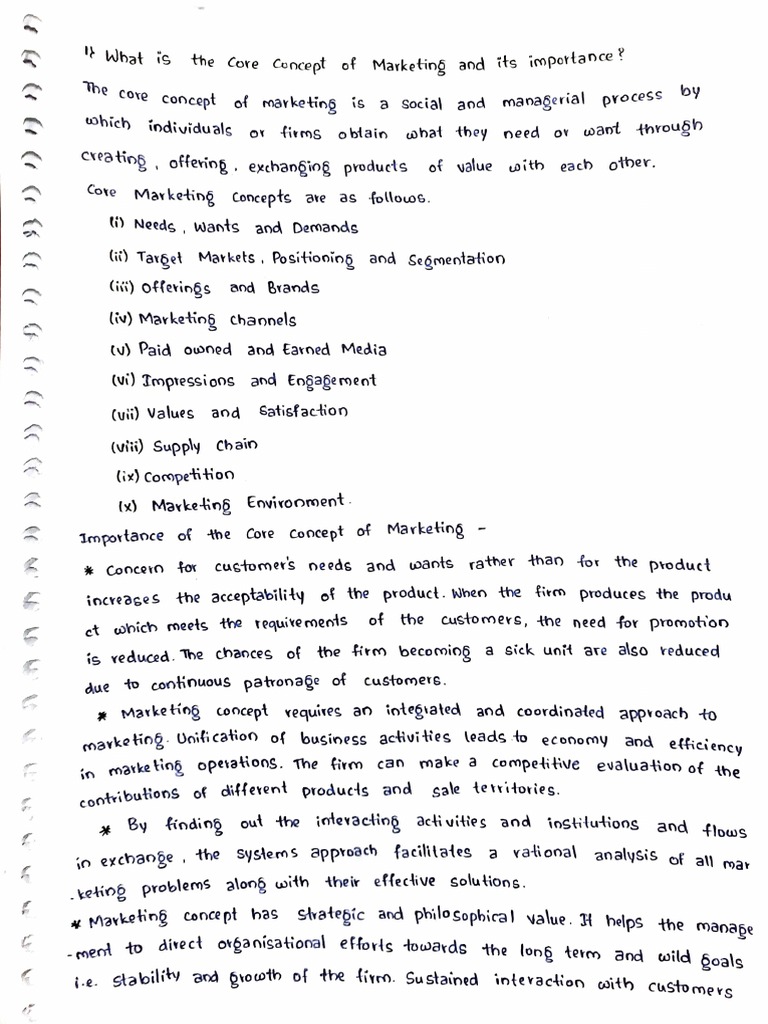 1} What is the Core Concept of Marketing and its importance?
The core concept of marketing is a social and managerial process by
which individuals or firms obtain what they need or want through
creating, offering, exchanging products of value with each other.
Core Marketing Concepts are as follows.
(i) Needs, Wants and Demands
(ii) Target Markets, Positioning and Segmentation
(iii) Offerings and Brands
(iv) Marketing Channels
(v) Paid owned and Earned Media
(vi) Impressions and Engagement
(vii) Values and Satisfaction
(viii) Supply Chain
(ix) Competition
(x) Marketing Environment.
Importance of the Core Concept of Marketing -
* Concern for customer's needs and wants rather than for the product
increases the acceptability of the product. When the firm produces the produ
ct which meets the requirements of the customers, the need for promotion
is reduced. The chances of the firm becoming a sick unit are also reduced
due to continuous patronage of customers.
* Marketing concept requires an integrated and coordinated approach to
marketing. Unification of business activities leads to economy and efficiency
in marketing operations. The firm can make a competitive evaluation of the
contributions of different products and sale territories.
* By finding out the interacting activities and institutions and flows
in exchange, the systems approach facilitates a rational analysis of all mar
-keting problems along with their effective solutions.
* Marketing concept has strategic and philosophical value. It helps the manage
-ment to direct organisational efforts towards the long term and wild goals
i.e. stability and growth of the firm. Sustained interaction with customers